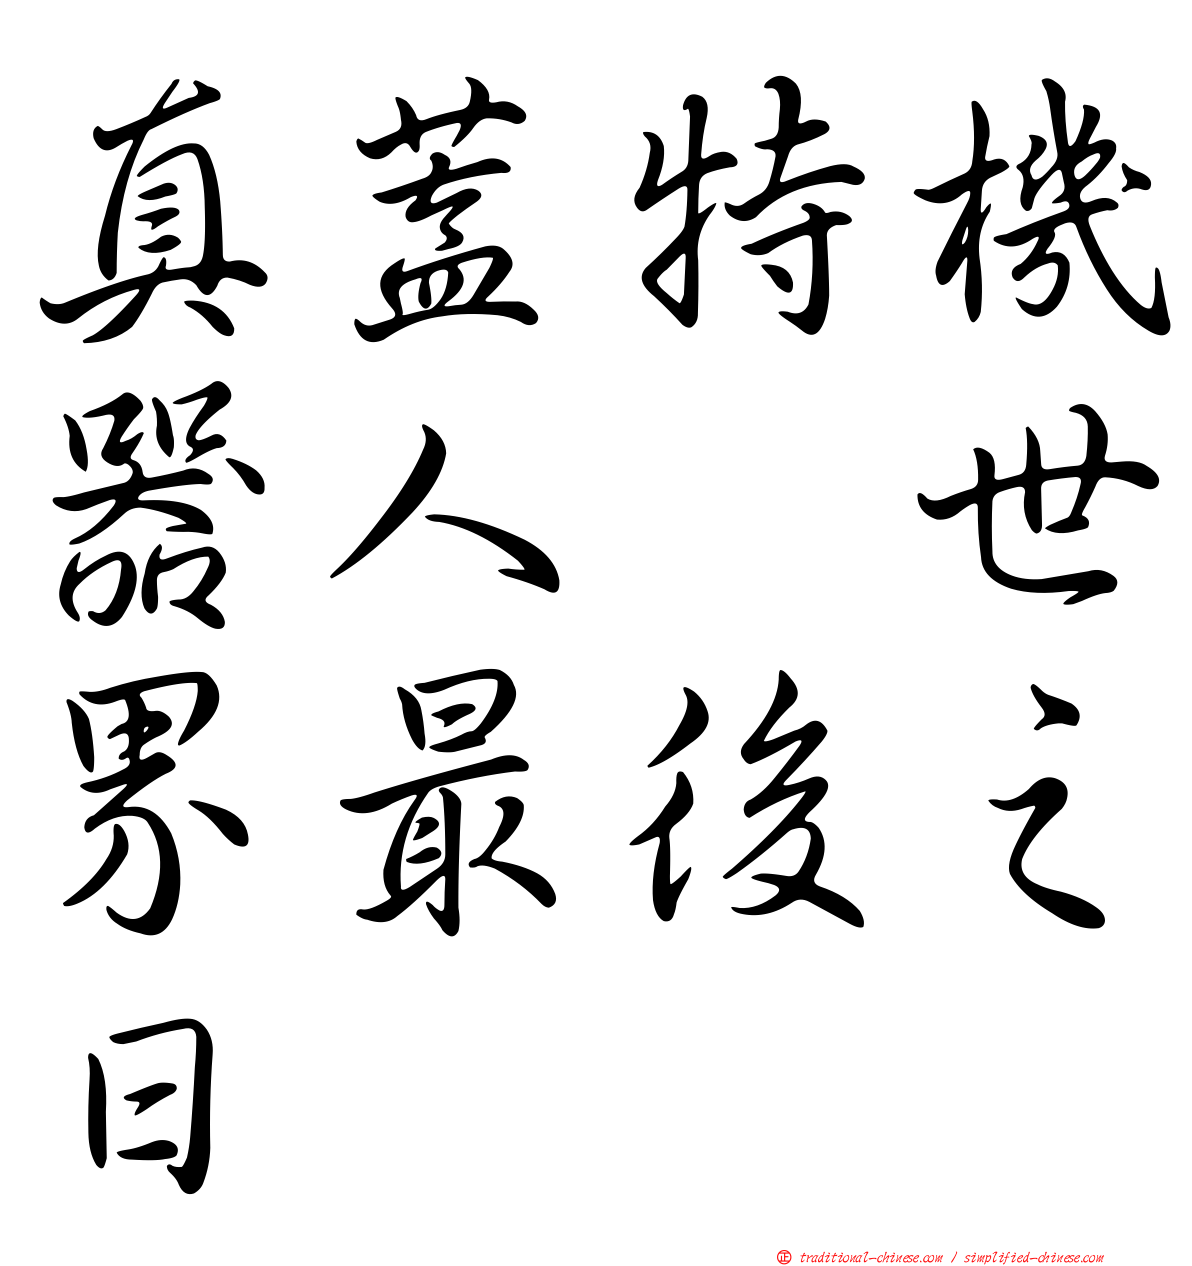 真蓋特機
器人 世
界最後之
日
正 traditional-chinese.com / simplified-chinese.com